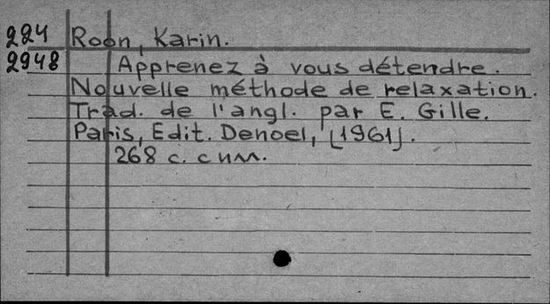 224 Roon, Karin.
2948 Apprenez à vous détendre.
Nouvelle méthode de relaxation.
Trad. de l'angl. par E. Gille.
Paris, Edit. Denoel, [1961].
268 с. с илл.